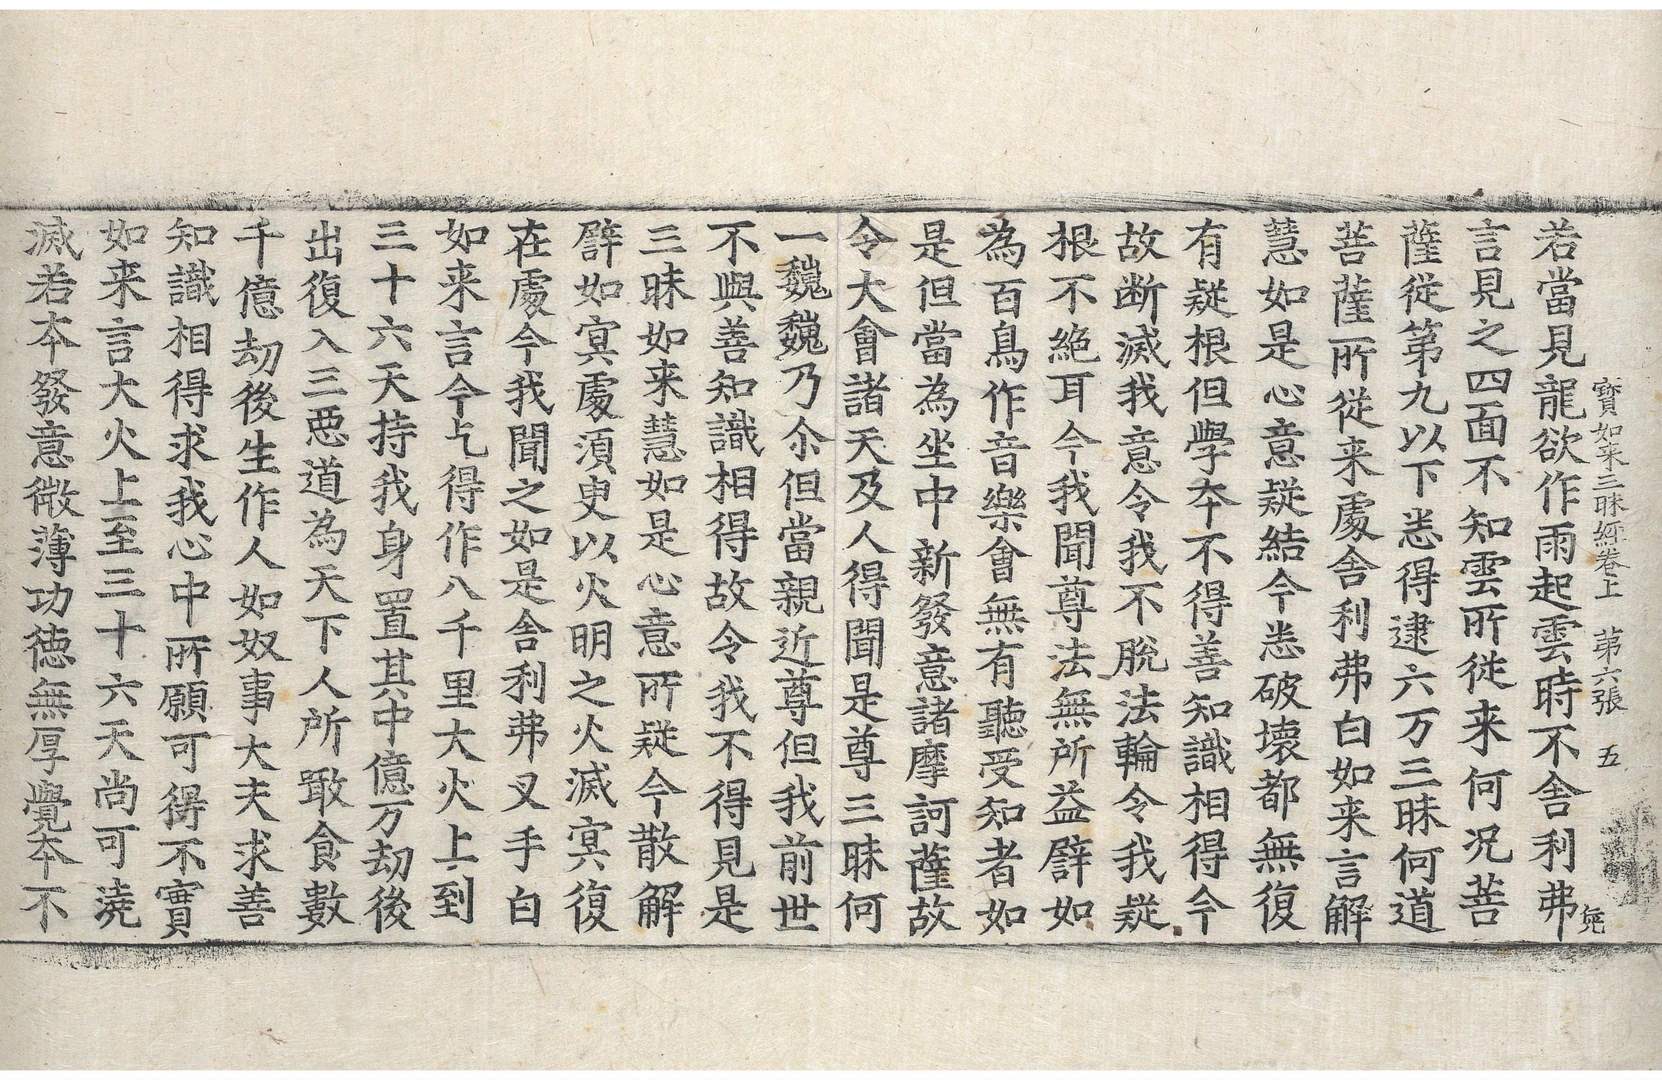 寳如来三昧經卷上　第六張　五
若當見龍欲作雨起雲時不舎利弗
言見之四面不知雲所從来何况菩
薩從第九以下悉得逮六万三昧何道
菩薩所從来處舎利弗白如来言解
慧如是心意疑結今悉破壞都無復
有疑根但學夲不得善知識相得今
故断滅我意令我不脫法輪令我疑
根不絶耳今我聞尊法無所益譬如
為百鳥作音樂會無有聽受知者如
是但當為坐中新發意諸摩訶薩故
令大會諸天及人得聞是尊三昧何
一巍巍乃尒但當親近尊但我前世
不與善知識相得故令我不得見是
三昧如来慧如是心意所疑今散解
譬如冥處須臾以火明之火滅冥復
在處今我聞之如是舎利弗叉手白
如来言今乞得作八千里大火上到
三十六天持我身置其中億万劫後
出復入三惡道為天下人所噉食數
千億劫後生作人如奴事大夫求善
知識相得求我心中所願可得不寳
如来言大火上至三十六天尚可澆
滅若夲發意微薄功德無厚覺夲不